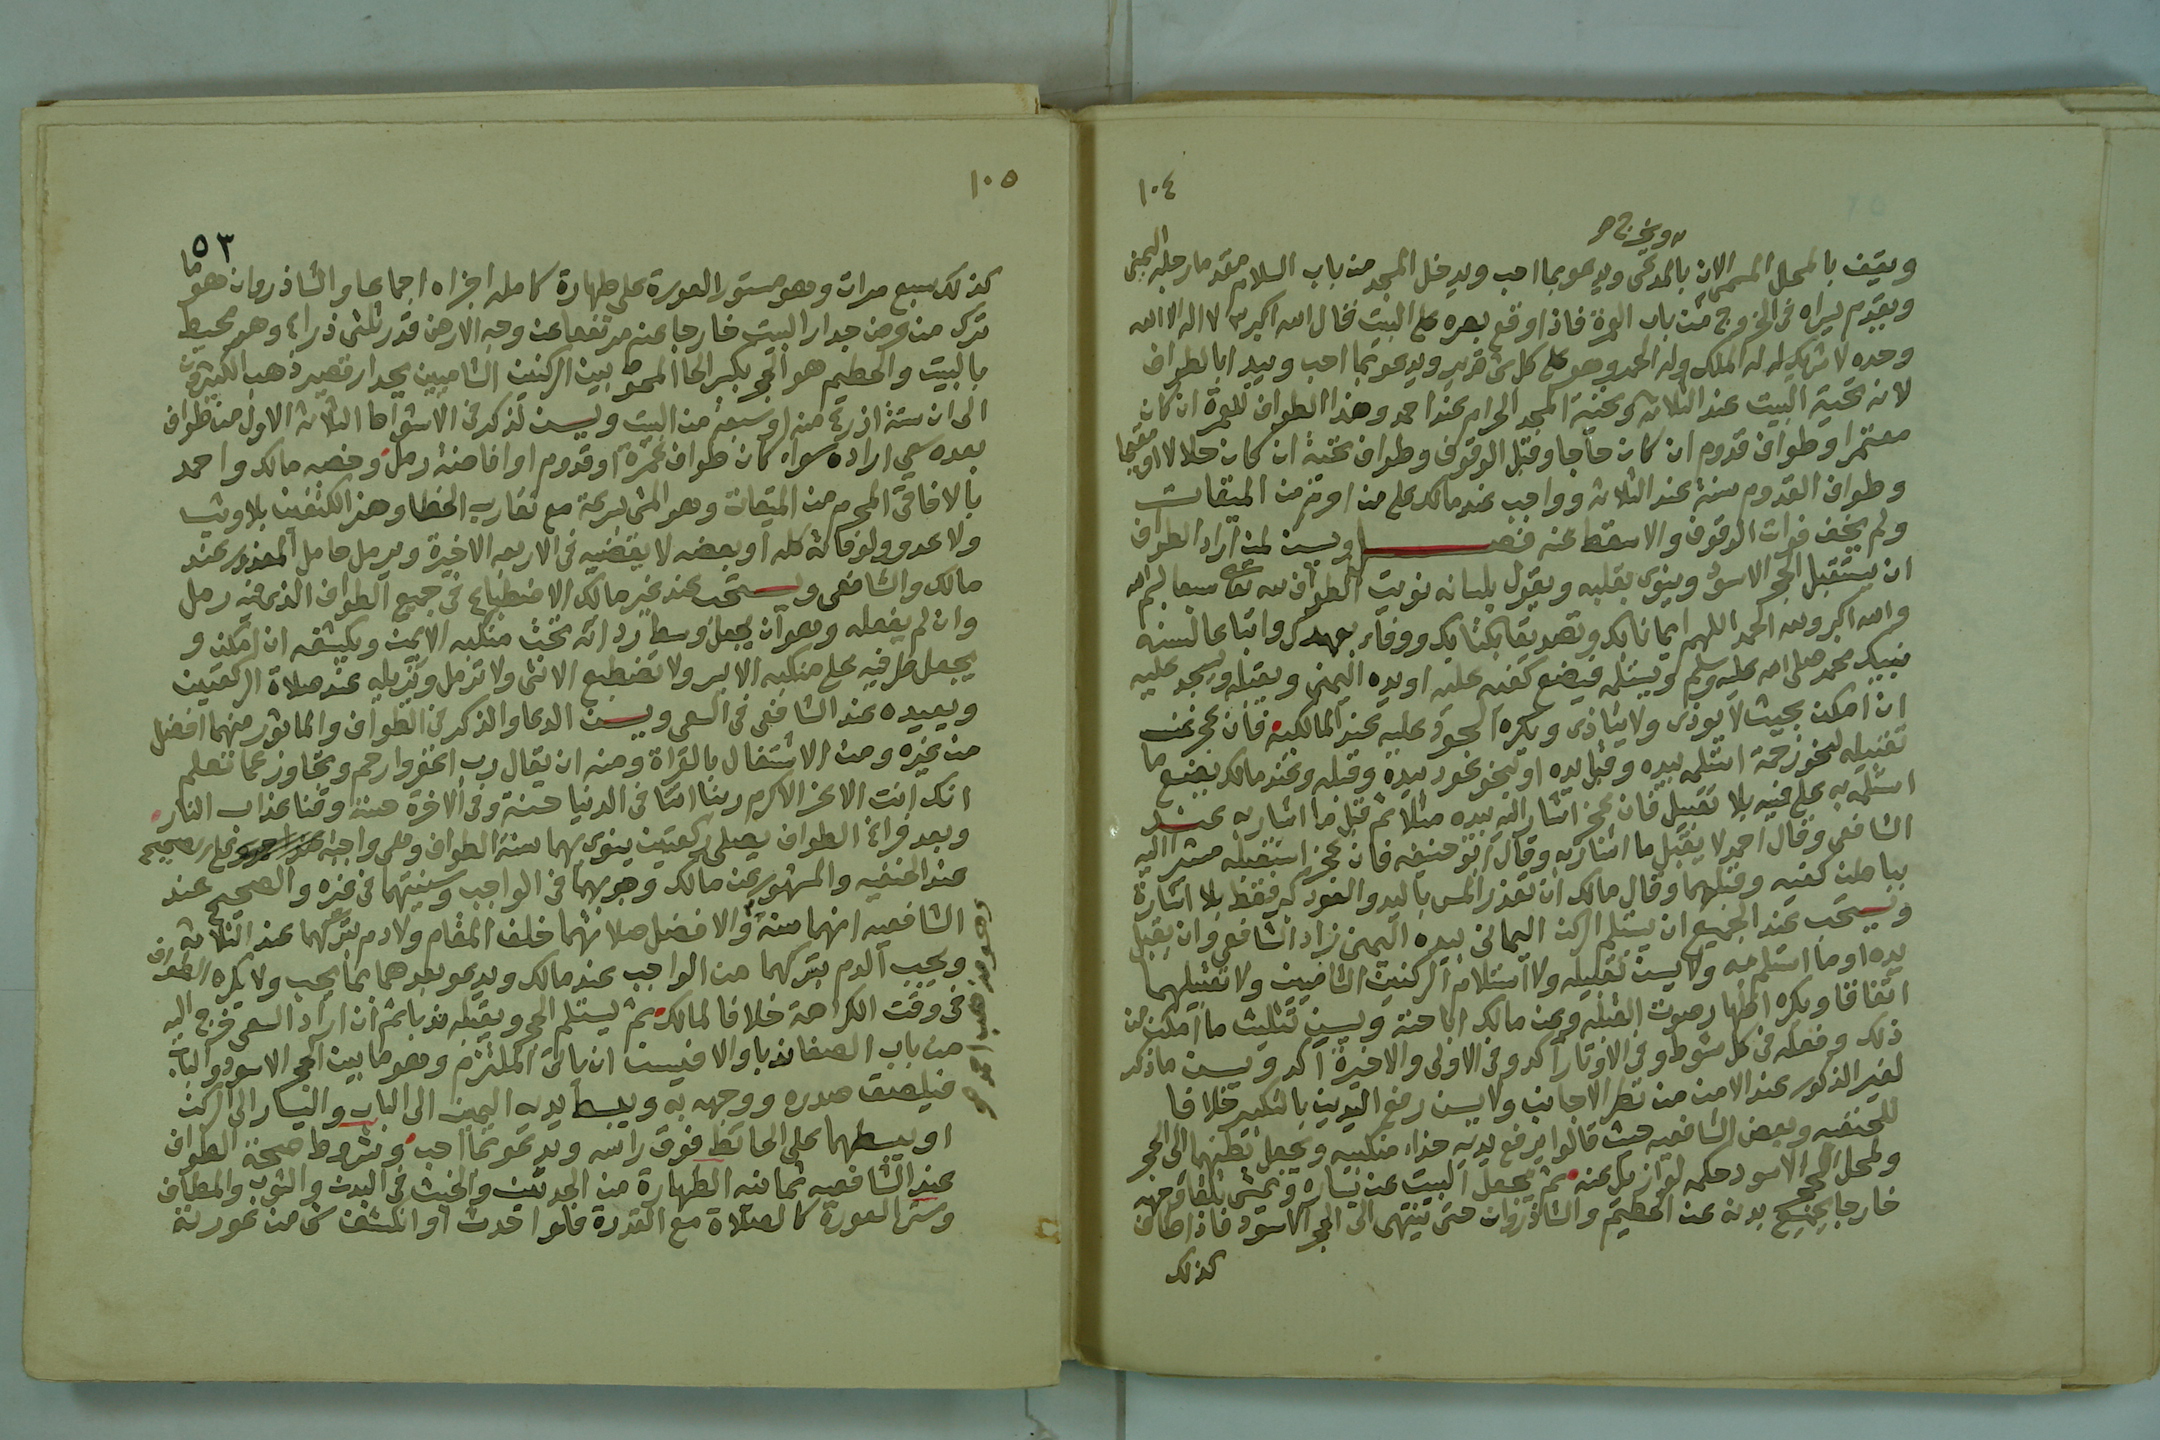 ١٠٤
ويقف بالمحل المسمى الان بالمدعى ويدعو بما احب ويدخل المسجد من باب السلام مقدما رجله اليمنى
ويقدم يسراه فى الخروج من باب العمرة فاذا وقع بصره على البيت قال الله اكبر ٣ لا اله الا الله
وحده لا شريك له له الملك وله الحمد وهو على كل شى قدير ويدعو بما احب ويبدا بالطواف
لانه تحية البيت عند الثلاثة وتحية المسجد الحرام عند احمد وهذا الطواف للعمرة ان كان
معتمرا وطواف قدوم ان كان حاجا وقبل الوقوف وطواف تحية ان كان حلالا او مقيما
وطواف القدوم سنة عند الثلاثة وواجب عند مالك على من احرم من الميقات
ولم يخف فوات الوقوف والا سقط عنه فصل ويسن لمن اراد الطواف
ان يستقبل الحجر الاسود وينوى بقلبه ويقول بلسانه نويت الطواف لله تعالى سبعا بسم الله
والله اكبر ولله الحمد اللهم ايمانا بك وتصديقا بكتابك ووفاء بعهدك واتباعا لسنة
نبيك محمد صلى الله عليه وسلم ويستلمه فيضع كفيه عليه او يده اليمنى ويقبله ويسجد عليه
ان امكن بحيث لا يوذى ولا يتاذى ويكره السجود عليه عند المالكيه فان عجز عن
تقبيله لنحو زحمة استلمه بيده وقبل يده او بنحو عود بيده وقبله وعند مالك يضع ما
استلمه به على فيه بلا تقبيل فان عجز اشار اليه بيده مثلا ثم قبل ما اشار به عند
الشافعى وقال احمد لا يقبل ما اشار به وقال ابو حنيفه فان عجز استقبله مشيرا اليه
بباطن كفيه وقبلهما وقال مالك ان تعذر المس باليد والعود كبر فقط بلا اشارة
ويستحب عند الجميع ان يستلم الركن اليمانى بيده اليمنى زاد الشافعى وان يقبل
يده او ما استلم به ولا يسن تقبيله ولا استلام الركنين الشاميين ولا تقبيلهما
اتفاقا ويكره اظهار صوت القبله وعن مالك اباحته ويسن تثليث ما امكن من
ذلك وفعله فى كل شوط وفى الاوتار آكد وفى الاولى والاخيرة آكد ويسن ما ذكر
لغير الذكور عند الامن من نظر الاجانب ولا يسن رفع اليدين بالتكبير خلافا
للحنفيه وبعض الشافعيه حيث قالوا يرفع يديه حذاء منكبيه ويجعل بطنهما الى الحجر
ولمحل الحجر الاسود حكمه لو ازيل عنه ثم يجعل البيت عن يساره ويمشى تلقا وجهه
خارجا بجميع بدنه عن الحطيم والشاذروان حتى ينتهى الى الحجر الاسود فاذا طاف
كذلك
١٠٥
٥٣
كذلك سبع مرات وهو مستور العورة على طهارة كامله اجزاه اجماعا والشاذروان هو ما
ترك من عرض جدار البيت خارجا عنه مرتفعا عن وجه الارض قدر ثلثى ذراع وهو محيط
بالبيت والحطيم هو الحجر بكسر الحا المحوط بين الركنين الشاميين بجدار قصير ذهب الكثيرون
الى ان ستة اذرع منه او سبعة من البيت ويسن لذكر فى الاشواط الثلاثة الاول من طواف
بعده سعى اراده سواء كان طواف عمرة او قدوم او افاضة رمل وخصه مالك واحمد
بالافاقى المحرم من الميقات وهو المشى بسرعة مع تقارب الخطا وهز الكتفين بلا وثب
ولا عدو ولو فاته كله او بعضه لا يقضيه فى الاربعه الاخيرة ويرمل حامل المعذور عند
مالك والشافعى ويستحب عند غير مالك الاضطباع فى جميع الطواف الذى فيه رمل
وان لم يفعله وهو ان يجعل وسط ردائه تحت منكبه الايمن ويكشفه ان امكن و
يجعل طرفيه على منكبه الايسر ولا تضطبع الانثى ولا ترمل ويزيله عند صلاة الركعتين
ويعيده عند الشافعى فى السعى ويسن الدعا والذكر فى الطواف والماثور منهما افضل
من غيره ومن الاشتغال بالقراة ومنه ان يقال رب اغفر وارحم وتجاوز عما تعلم
انك انت الاعز الاكرم ربنا اتنا فى الدنيا حسنة وفى الاخرة حسنة وقنا عذاب النار
وبعد فراغ الطواف يصلى ركعتين ينوى بهما سنة الطواف وهى واجبة على الصحيح
عند الحنفيه والمشهور عن مالك وجوبهما فى الواجب وسنيتهما فى غيره والصحيح عند
الشافعيه انهما سنة والافضل صلاتهما خلف المقام ولا دم بتركهما عند الثلاثة
ويجب الدم بتركهما من الواجب عند مالك ويدعو بعدهما بما يحب ولا يكره الطواف
فى وقت الكراهة خلافا لمالك ثم يستلم الحجر ويقبله ندبا ثم ان اراد السعى خرج اليه
من باب الصفا ندبا والا فيسن ان ياتى الملتزم وهو ما بين الحجر الاسود والباب
فيلصق صدره ووجهه به ويبسط يديه اليمين الى الباب واليسار الى الركن
او يبسطهما على الحائط فوق راسه ويدعو بما احب وشروط صحة الطواف
عند الشافعيه ثمانيه الطهارة من الحدثين والخبث فى البدن والثوب والمطاف
وستر العورة كالصلاة مع القدرة فلو احدث او انكشف شى من عورته
وهو مذهب احمد صح